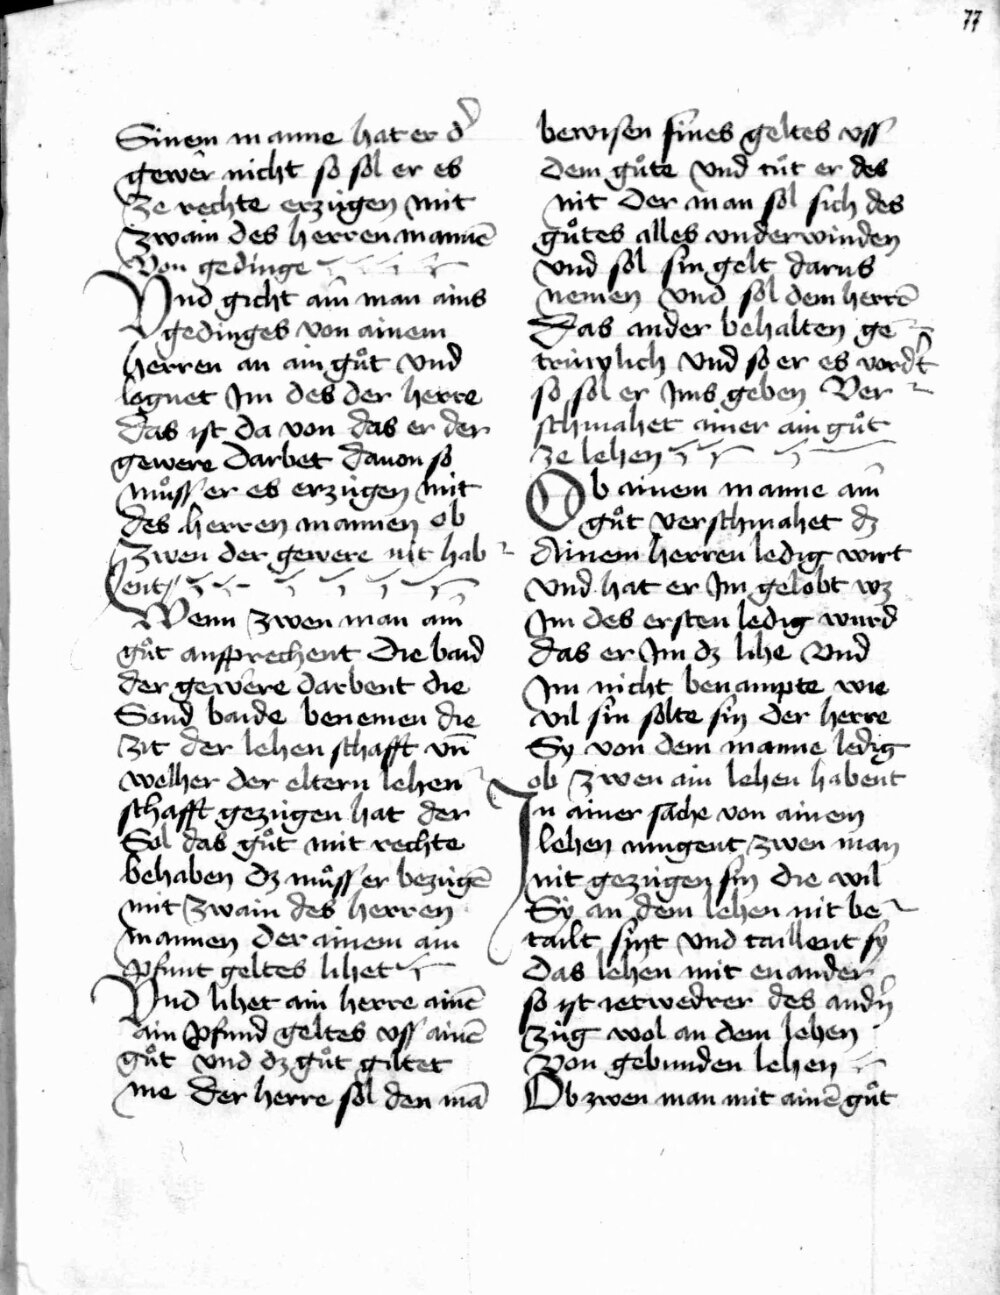 77
Sinem manne hat er d᷑
gewer nicht so sol er es
ze rechte erzúgen mit
zwain des herren mannē
Von gedinge
Vnd gicht ain man ains
gedinges von ainem
herren an ain gůt vnd
lognet Im des der herre
das ist da von das er der
gewere darbet dauon so
můss er es erzúgen mit
des herren mannen ob
zwen der gewere nit hab
ent
Wenn zwen man ain
gůt ansprechent Die baid
der gewere darbent die
Sond baide benemen die
zit der lehen schafft vn̄
welher der eltern lehen
schafft gezúgen hat der
Sol das gůt mit rechte
behaben dz můss er bezúgē
mit zwain des herren
mannen der ainem ain
pfunt geltes lihet
Vnd lihet ain herre ainē
ain pfund geltes vss ainē
gůt vnd dz gůt giltet
me der herre sol den mā
bewisen sines geltes vss
dem gůte vnd tůt er des
nit der man sol sich des
gůtes alles vnderwinden
vnd sol sin gelt darus
nemen vnd sol dem herrē
Das ander behalten ge
trúwlich vnd so er es vordt
so sol er Ims geben Ver
schmahet ainer ain gůt
ze lehen
Ob ainem manne ain
gůt verschmahet dz
ainem herren ledig wirt
vnd hat er Im gelobt wz
Im des ersten ledig wurd
das er Im dz lihe vnd
Im nicht benampte wie
vil sin solte sin der herre
Sy von dem manne ledig
ob zwen ain lehen habent
In ainer sache von ainem
lehen mugent zwen man
nit gezúgen sin die wil
Sy an dem lehen nit be
tailt sint vnd taillent sy
das lehen mit enander
so ist ietwedrer des andn̄
zúg wol an dem lehen
Von gebunden lehen
Ob zwen man mit ainē gůt